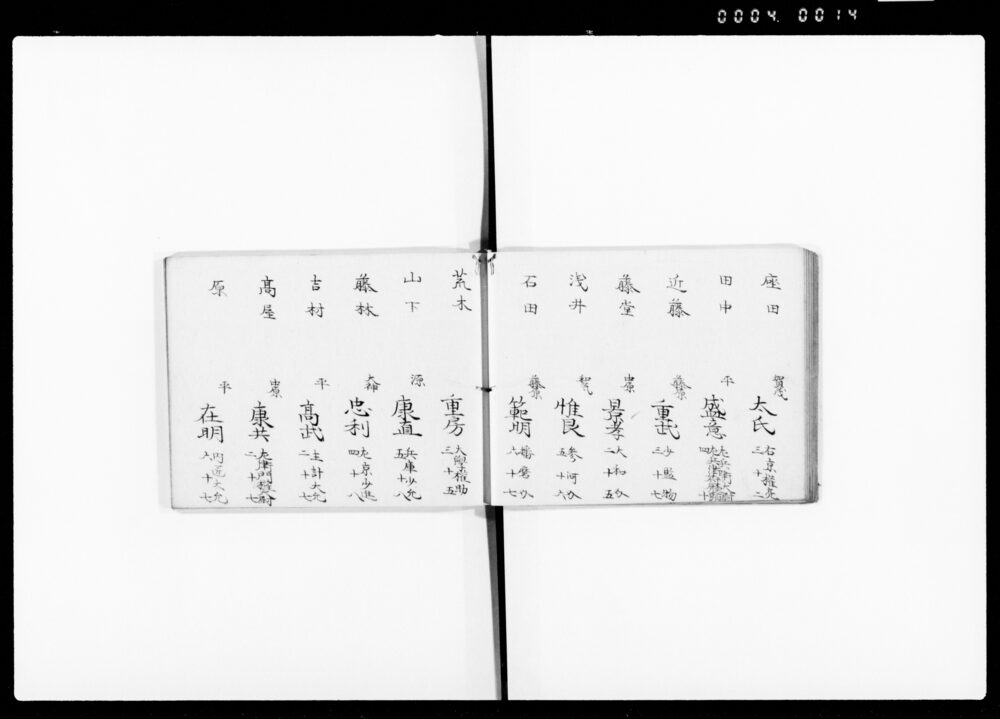 0004 0014
座田 賀茂 太氏 右京権亮 三十二
田中 平 盛意
近藤 藤原 重武 少監物 三十七
藤堂 中原 景孝 大和介 二十五
浅井 惟良 参河介 五十六
石田 藤原 範明 播磨介 六十七
荒木 重房 大學権助 三十五
山下 源 康直 兵庫少允 五十八
藤林 大神 忠利 左京少進 四十八
吉村 平 高武 主計大允 二十七
高屋 中原 康共 左衛門権少尉 二十七
原 平 在明 内匠大允 六十七